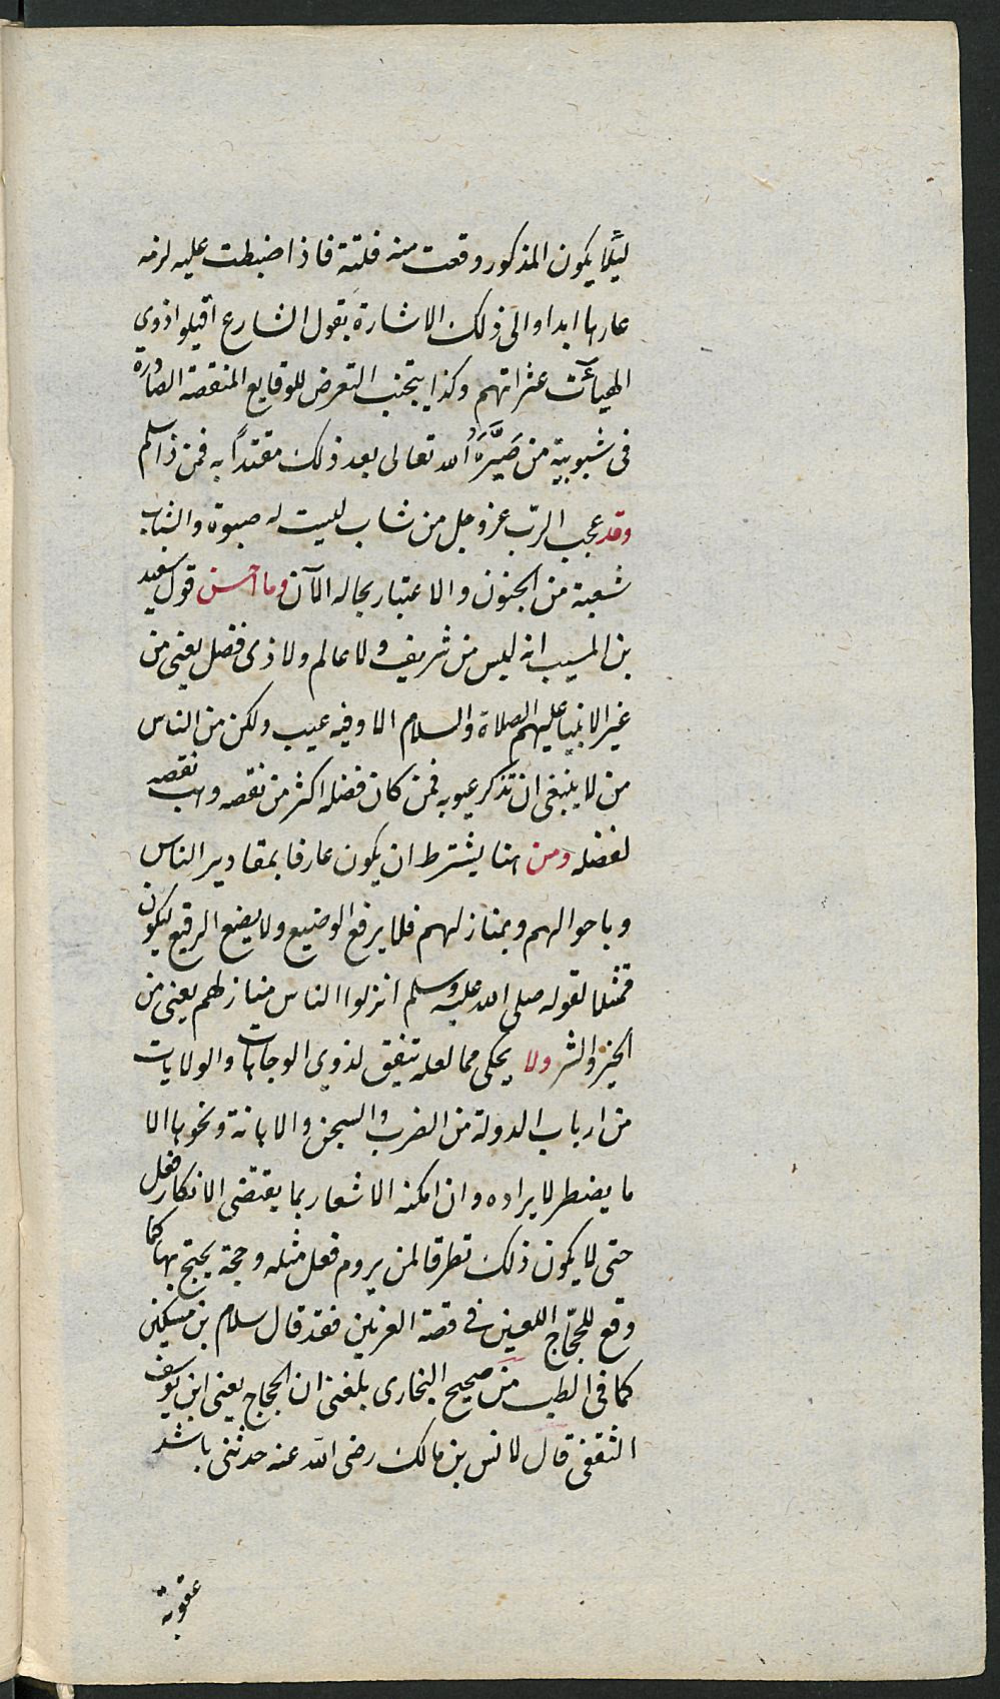 ليلا يكون المذكور وقعت منه فلتة فاذا ضبطت عليه لزمه
عارها ابدا والى ذلك الاشارة بقول الشارع اقيلوا ذوي
الهيآت عثراتهم وكذا يتجنب التعرض للوقايع المنقصة الصادرة
فى شبوبية من صَيَّرَهُ الله تعالى بعد ذلك مقتدًا به فمن ذا سلم
وقد عجب الرب عز وجل من شاب ليست له صبوة والشباب
شعبة من الجنون والاعتبار بحاله الآن وما احسن قول سعيد
بن المسيب انه ليس من شريف ولا عالم ولا ذى فضل يعنى من
غير الانبيا عليهم الصلاة والسلام الا وفيه عيب ولكن من الناس
من لا ينبغى ان تذكر عيوبه فمن كان فضله اكثر من نقصه وهب نقصه
لفضله ومن هنا يشترط ان يكون عارفا بمقادير الناس
وباحوالهم وبمنازلهم فلا يرفع الوضيع ولا يضع الرفيع ليكون
ممتثلا لقوله صلى الله عليه وسلم انزلوا الناس منازلهم يعنى من
الخير والشر ولا يحكى مما لعله تيفق لذوى الوجاهات والولايات
من ارباب الدولة من الضرب والسجن والاهانة ونحوها الا
ما يضطر لايراده وان امكنه الاشعار بما يقتضى الانكار فعل
حتى لا يكون ذلك تطرقا لمن يروم فعل مثله وحجة يحتج بها كما
وقع للحجّاج اللعين فى قصة العرنيين فقد قال سلام بن مسكين
كما فى الطب من صحيح البخارى بلغنى ان الحجاج يعنى ابن يوسف
الثقفى قال لانس بن مالك رضى الله عنه حدثنى باشد
عقوبة